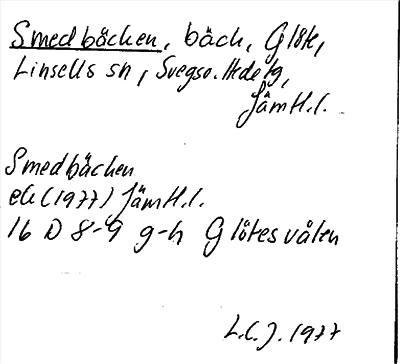 Smedbäcken, bäck, Glöte,
Linsells sn, Svegso. Hdstg,
Jämtl.l.
Smedbäcken
ek (1977) Jämtl.l.
16 D 8-9 g-h Glötesvålen
L.C.J. 1977